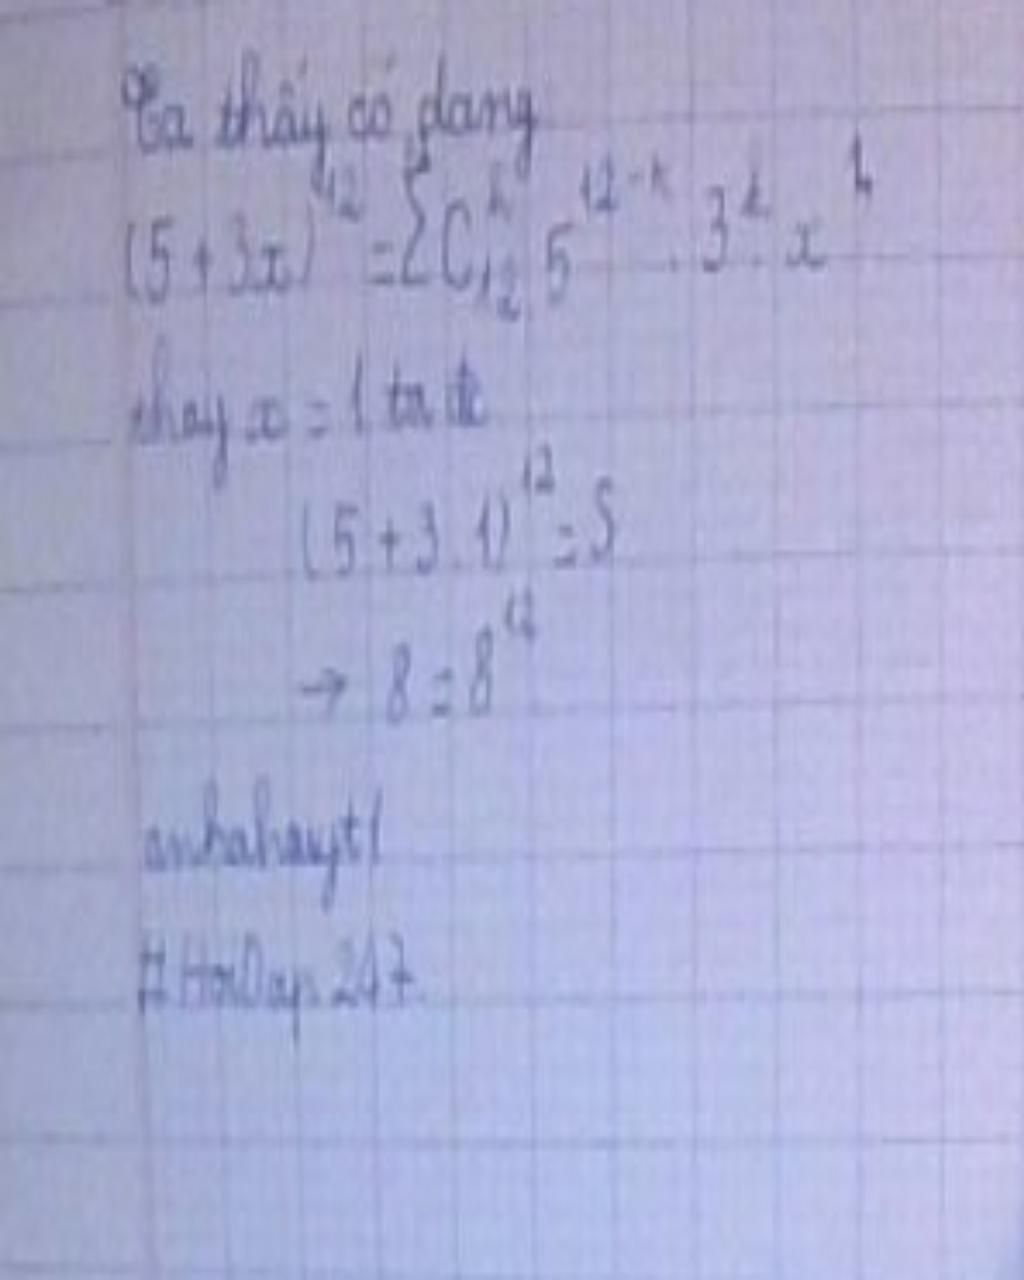 Ta thấy có dạng
(5+3x)^12 = ΣC_12^k 5^12-k . 3^k . x^k
thay x = 1 ta đc
(5+3.1)^12 = S
→ 8 = 8^12
anhahayt1
# HoiDap247